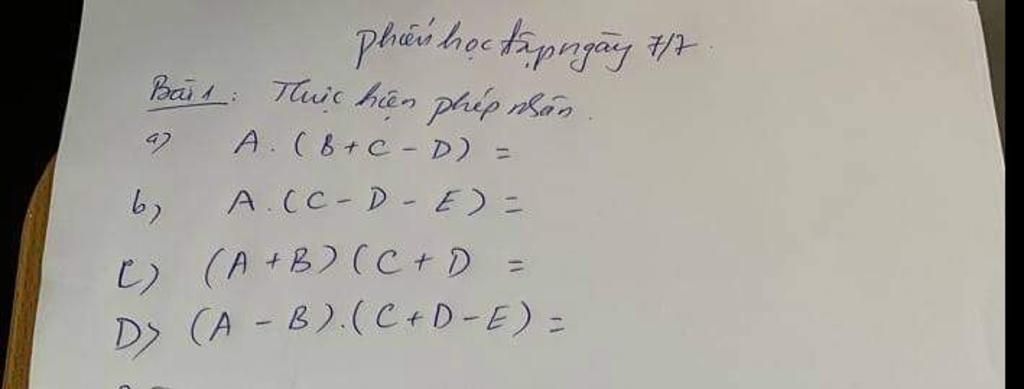 phiếu học tập ngày 7/7.
Bài 1: Thực hiện phép nhân.
a) A. (B + C - D) =
b) A. (C - D - E) =
C) (A + B) (C + D =
D) (A - B). (C + D - E) =